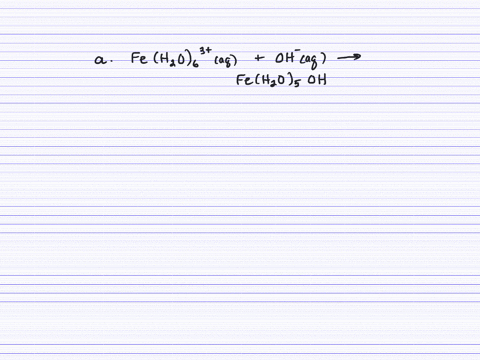 a. Fe(H₂O)₆³⁺(aq) + OH⁻(aq) ⟶
Fe(H₂O)₅OH